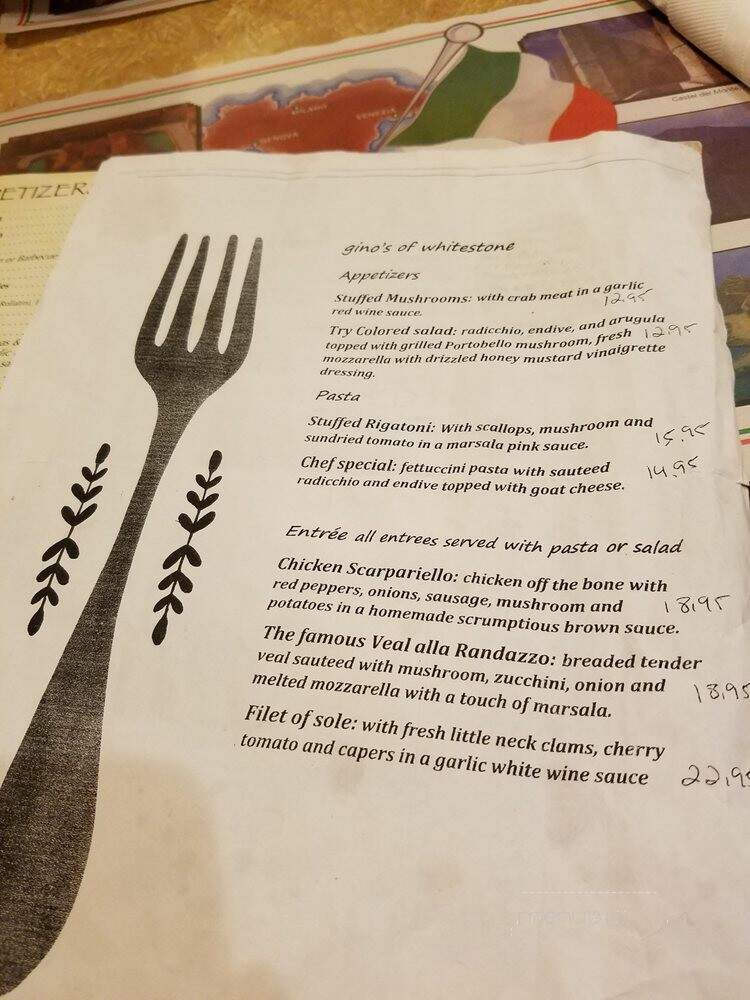 MILANO
VENEZIA
GENOVA
Castel del Monte
ETIZER
or Barbecue
gino's of whitestone
Appetizers
Stuffed Mushrooms: with crab meat in a garlic
red wine sauce. 12.95
Try Colored salad: radicchio, endive, and arugula
topped with grilled Portobello mushroom, fresh 12.95
mozzarella with drizzled honey mustard vinaigrette
dressing.
Pasta
Stuffed Rigatoni: With scallops, mushroom and
sundried tomato in a marsala pink sauce. 15.95
Chef special: fettuccini pasta with sauteed 14.95
radicchio and endive topped with goat cheese.
Entrée all entrees served with pasta or salad
Chicken Scarpariello: chicken off the bone with
red peppers, onions, sausage, mushroom and 18,95
potatoes in a homemade scrumptious brown sauce.
The famous Veal alla Randazzo: breaded tender
veal sauteed with mushroom, zucchini, onion and 18,95
melted mozzarella with a touch of marsala.
Filet of sole: with fresh little neck clams, cherry
tomato and capers in a garlic white wine sauce 22,95